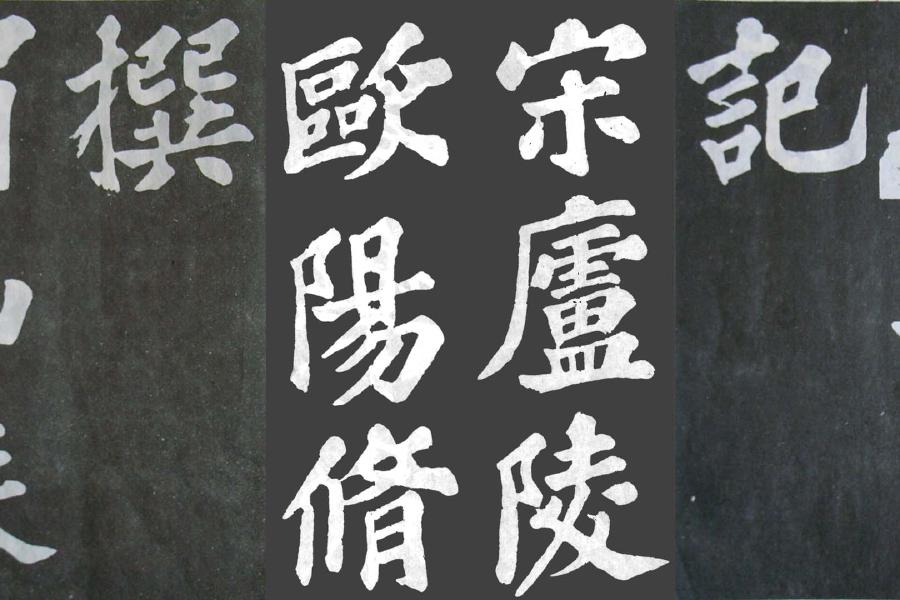 記
宋廬陵
歐陽脩
撰